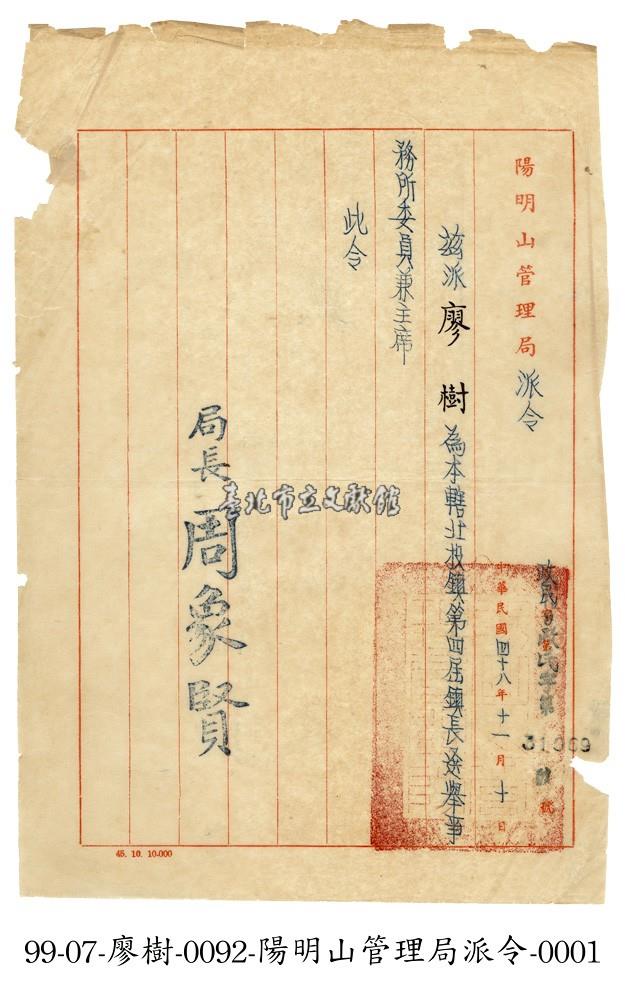 陽明山管理局派令
政民字第31069號
中華民國四十八年十一月十日
茲派廖樹為本轄北投鎮第四屆鎮長選舉事
務所委員兼主席
此令
局長周象賢
臺北市立文獻館
45. 10. 10-000
99-07-廖樹-0092-陽明山管理局派令-0001